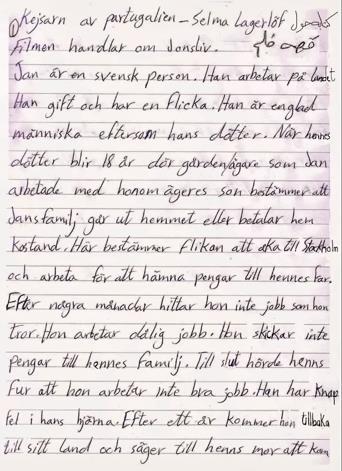 ① Kejsarn av partugalien - Selma Lagerlöf
filmen handlar om Jonsliv.
Jan är en svensk person. Han arbetar på landt
Han gift och har en flicka. Han är englad
människa eftersom hans dötter. När hovies
dötter blir 18 år dör gårdenägare som Jan
arbetade med honom ägeres son bestämmer att
Jansfamilj går ut hemmet eller betalar hem
kostand. Här bestämmer flikan att åka till Stokholm
och arbeta för att hämna pengar till hennes far.
Efter några månadar hittar hon inte jobb som hon
tror. Hon arbetar dålig jobb. Hon skickar inte
pengar till hennes familj. Till slut hörde henns
fur att hon arbetar inte bra jobb. Han har knapp
fel i hans hjärna. Efter ett år kommer hon tillbaka
till sitt land och säger till henns mor att kom